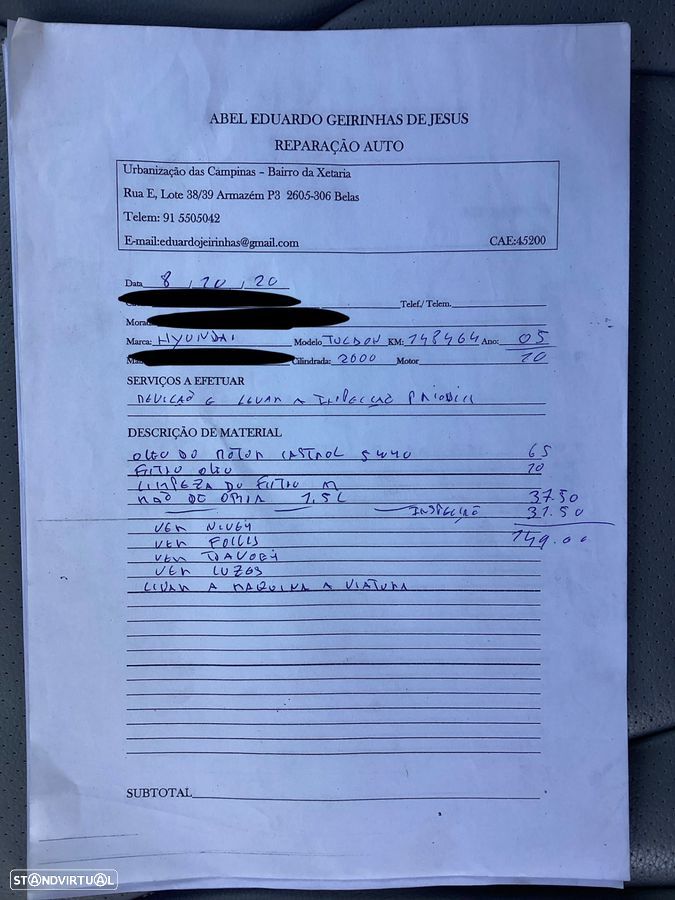 ABEL EDUARDO GEIRINHAS DE JESUS
REPARAÇÃO AUTO
Urbanização das Campinas – Bairro da Xetaria
Rua E, Lote 38/39 Armazém P3 2605-306 Belas
Telem: 91 5505042
E-mail:eduardojeirinhas@gmail.com CAE:45200
Data 8, 10, 20
Telef./ Telem.
Morad
Marca: HYUNDAI Modelo TUCSON KM: 148464 Ano: 05
Cilindrada: 2000 Motor 10
SERVIÇOS A EFETUAR
REVISÃO E LEVAR A INSPECÇÃO
DESCRIÇÃO DE MATERIAL
OLEO DO MOTOR CASTROL 5W40 65
FILTRO OLEO 10
LIMPEZA DO FILTRO
MÃO DE OBRA 1,5 37.50
INSPECÇÃO 31.50
VER 149.00
VER FOLES
VER
VER LUZES
LEVAR A MAQUINA A VIATURA
SUBTOTAL
STANDVIRTUAL